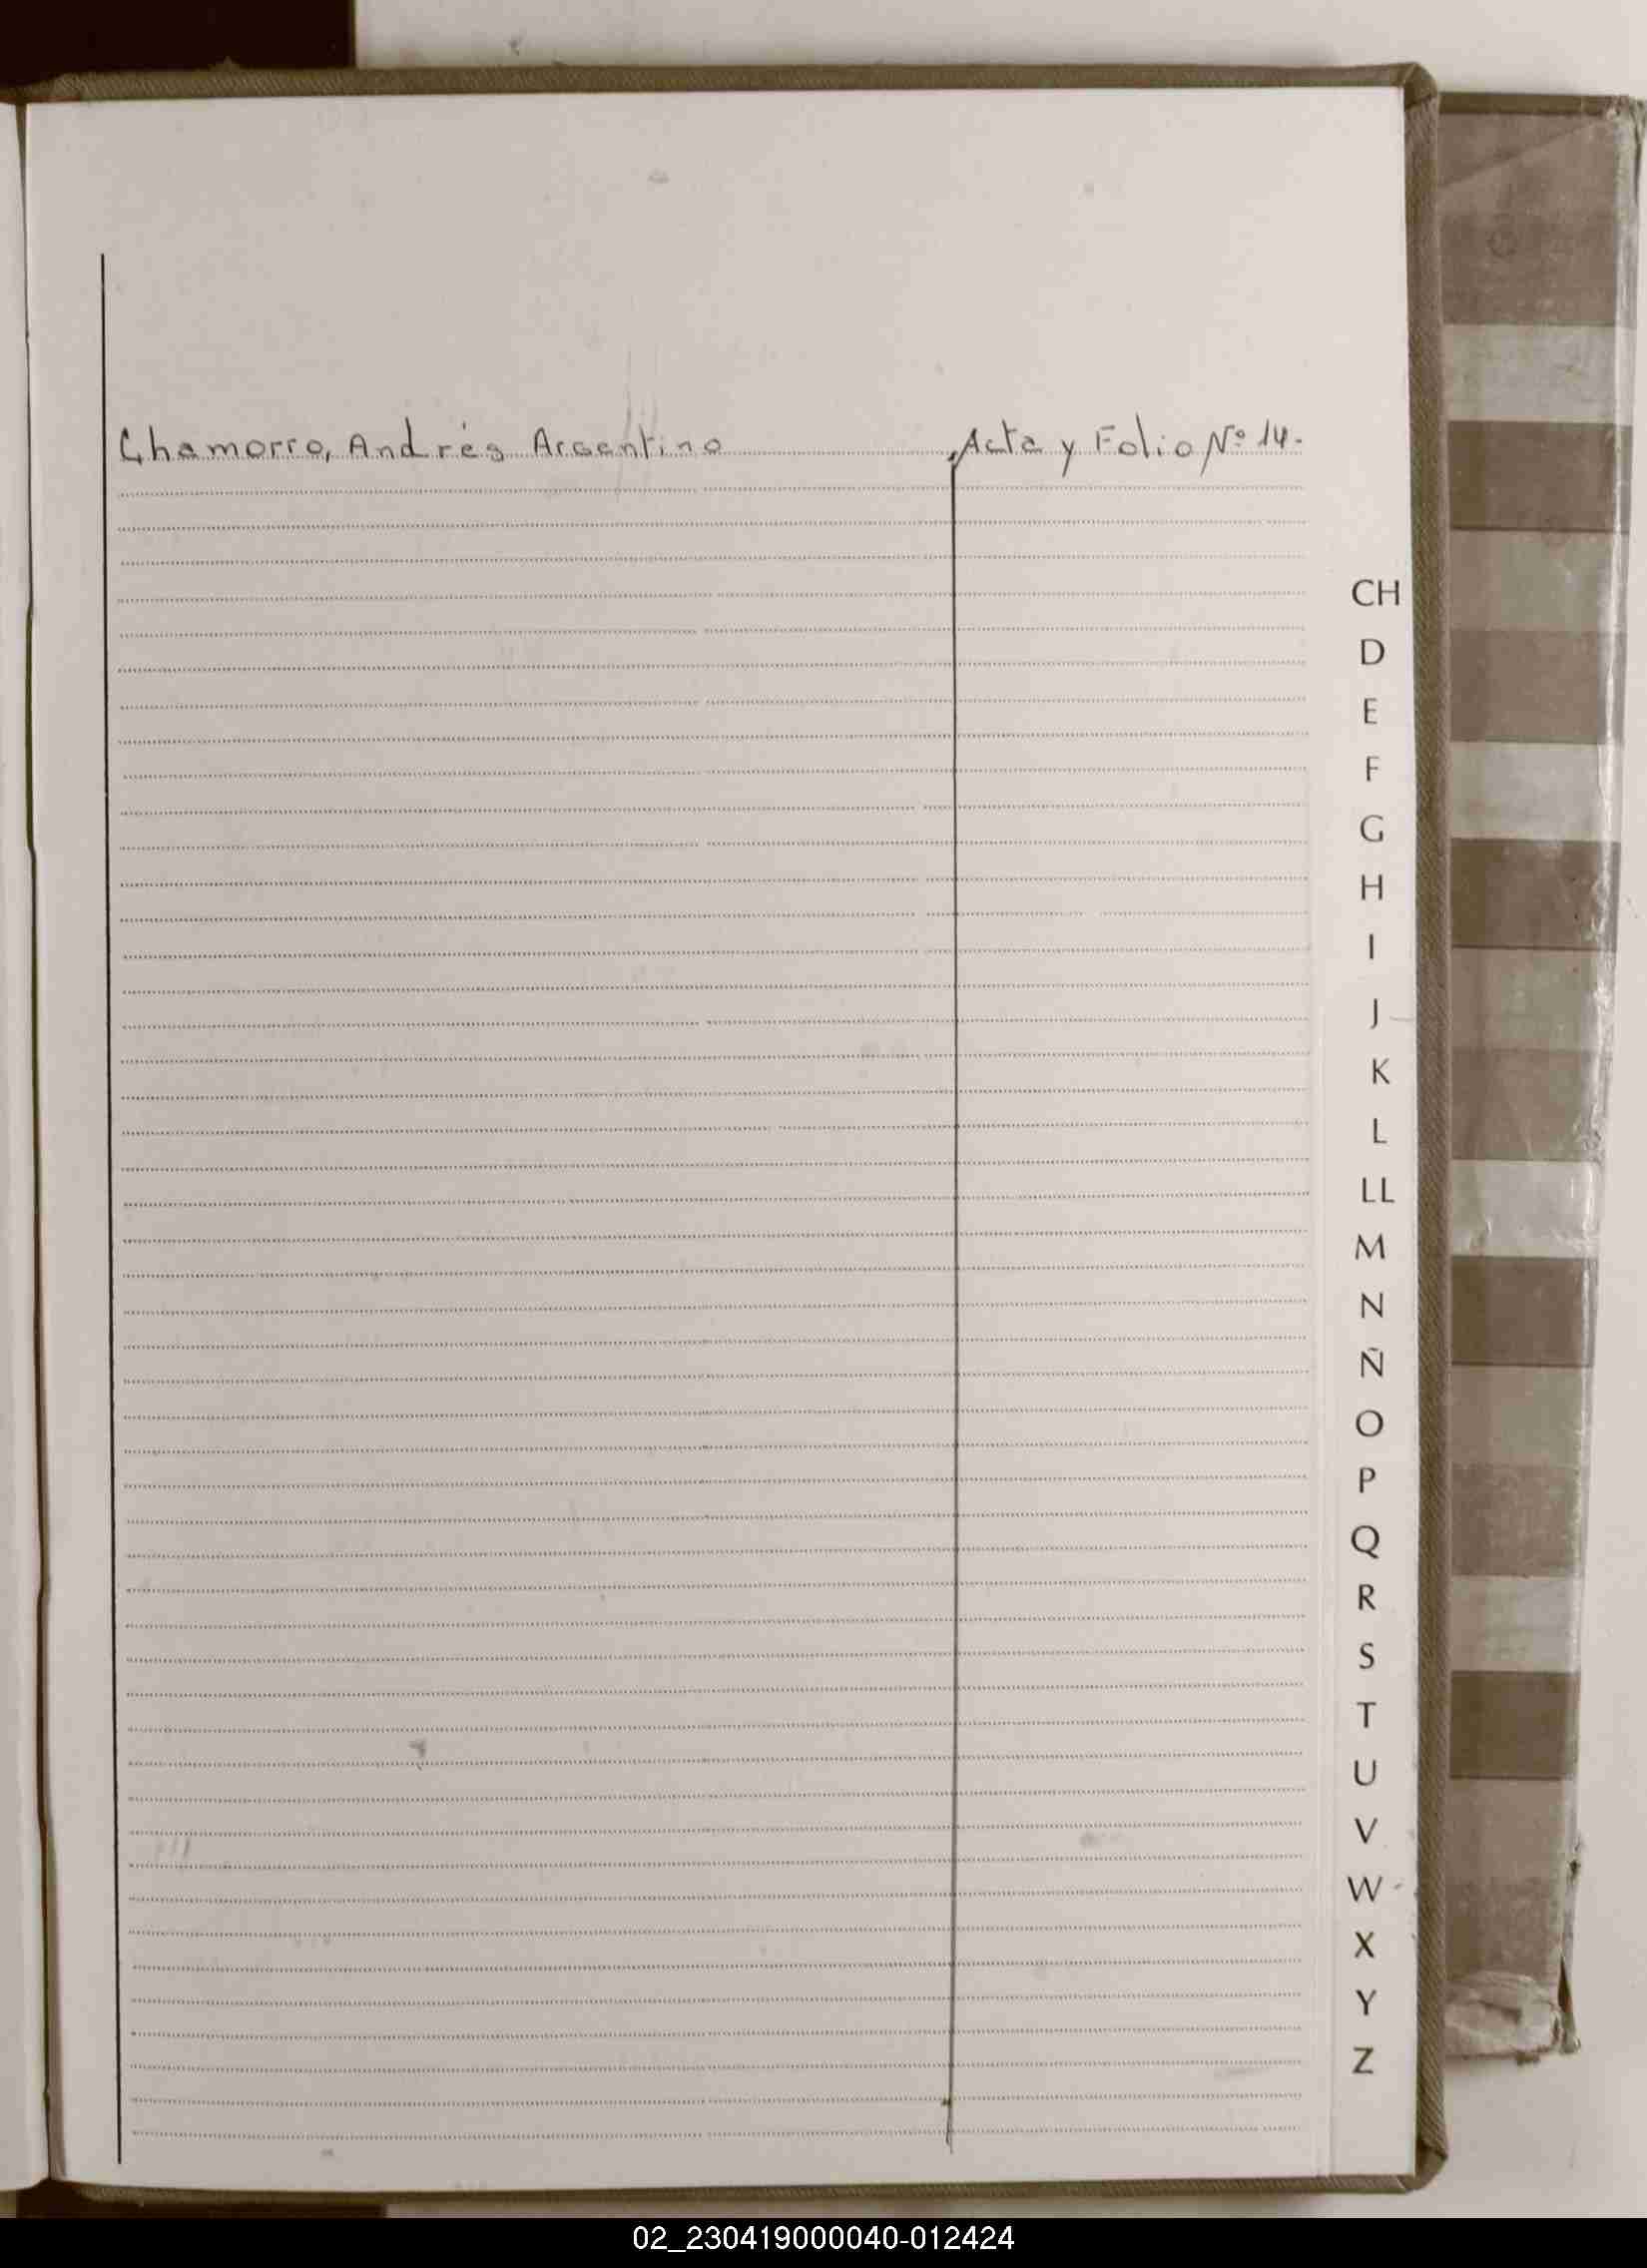 Chamorro, Andrés Argentino Acta y Folio Nº 14.-
CH
D
E
F
G
H
I
J
K
L
LL
M
N
Ñ
O
P
Q
R
S
T
U
V
W
X
Y
Z
02_230419000040-012424